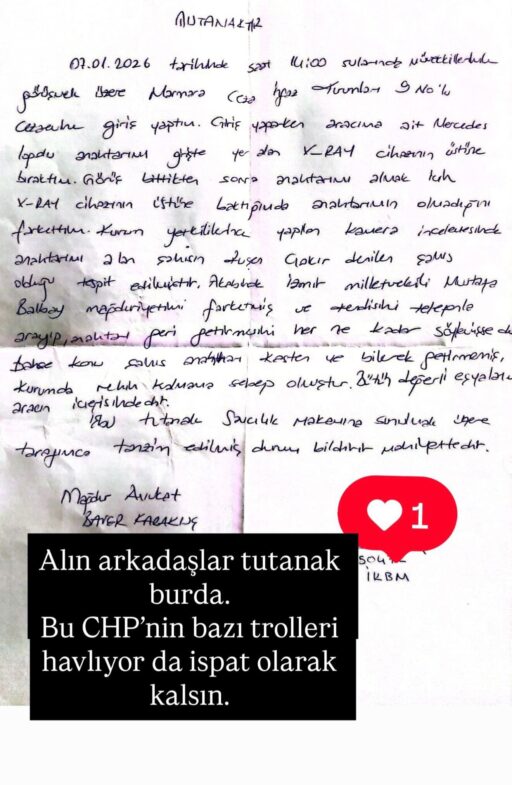 TUTANAKTIR
07.01.2026 tarihinde saat 14:00 sularında müvekkillerimle
görüşmek üzere Marmara Ceza İnfaz Kurumları 9 No'lu
Cezaevine giriş yaptım. Giriş yaparken aracıma ait Mercedes
logolu anahtarımı girişte yer alan X-RAY cihazının üstüne
bıraktım. Görüş bittikten sonra anahtarımı almak için
X-RAY cihazının üstüne baktığımda anahtarımın olmadığını
farkettim. Kurum yetkililerince yapılan kamera incelemesinde
anahtarımı alan şahsın Çakır denilen şahıs
olduğu tespit edilmiştir. Akabinde İzmir milletvekili Mustafa
Balbay mağduriyetimi farketmiş ve kendisini telefonla
arayıp, anahtarı geri getirmesini her ne kadar söylemişse de
konu şahıs anahtarı kasten ve bilerek getirmemiş,
kurumda rehin kalmama sebep olmuştur. Bütün değerli eşyalarım
aracın içerisindedir.
İşbu tutanak Savcılık Makamına sunulmak üzere
tarafımca tanzim edilmiş durum bildirir mahiyettedir.
Mağdur Avukat
1
İKBM
Alın arkadaşlar tutanak
burda.
Bu CHP’nin bazı trolleri
havlıyor da ispat olarak
kalsın.